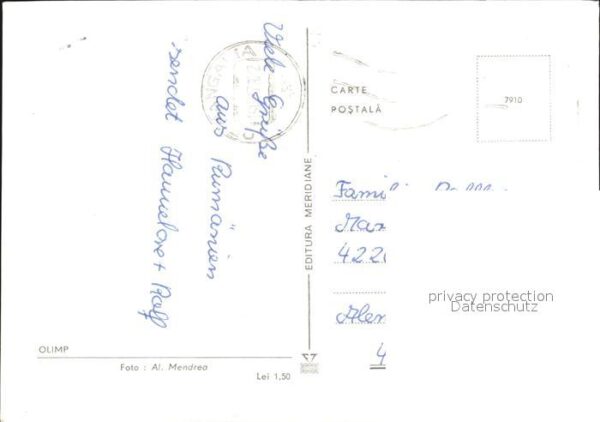 Viele Grüße
aus Rumänien
sendet Hannelore + Rolf
CARTE
POȘTALĂ
7910
EDITURA MERIDIANE
Fami
Max
422
privacy protection
Datenschutz
OLIMP
Foto : Al. Mendrea
Lei 1,50